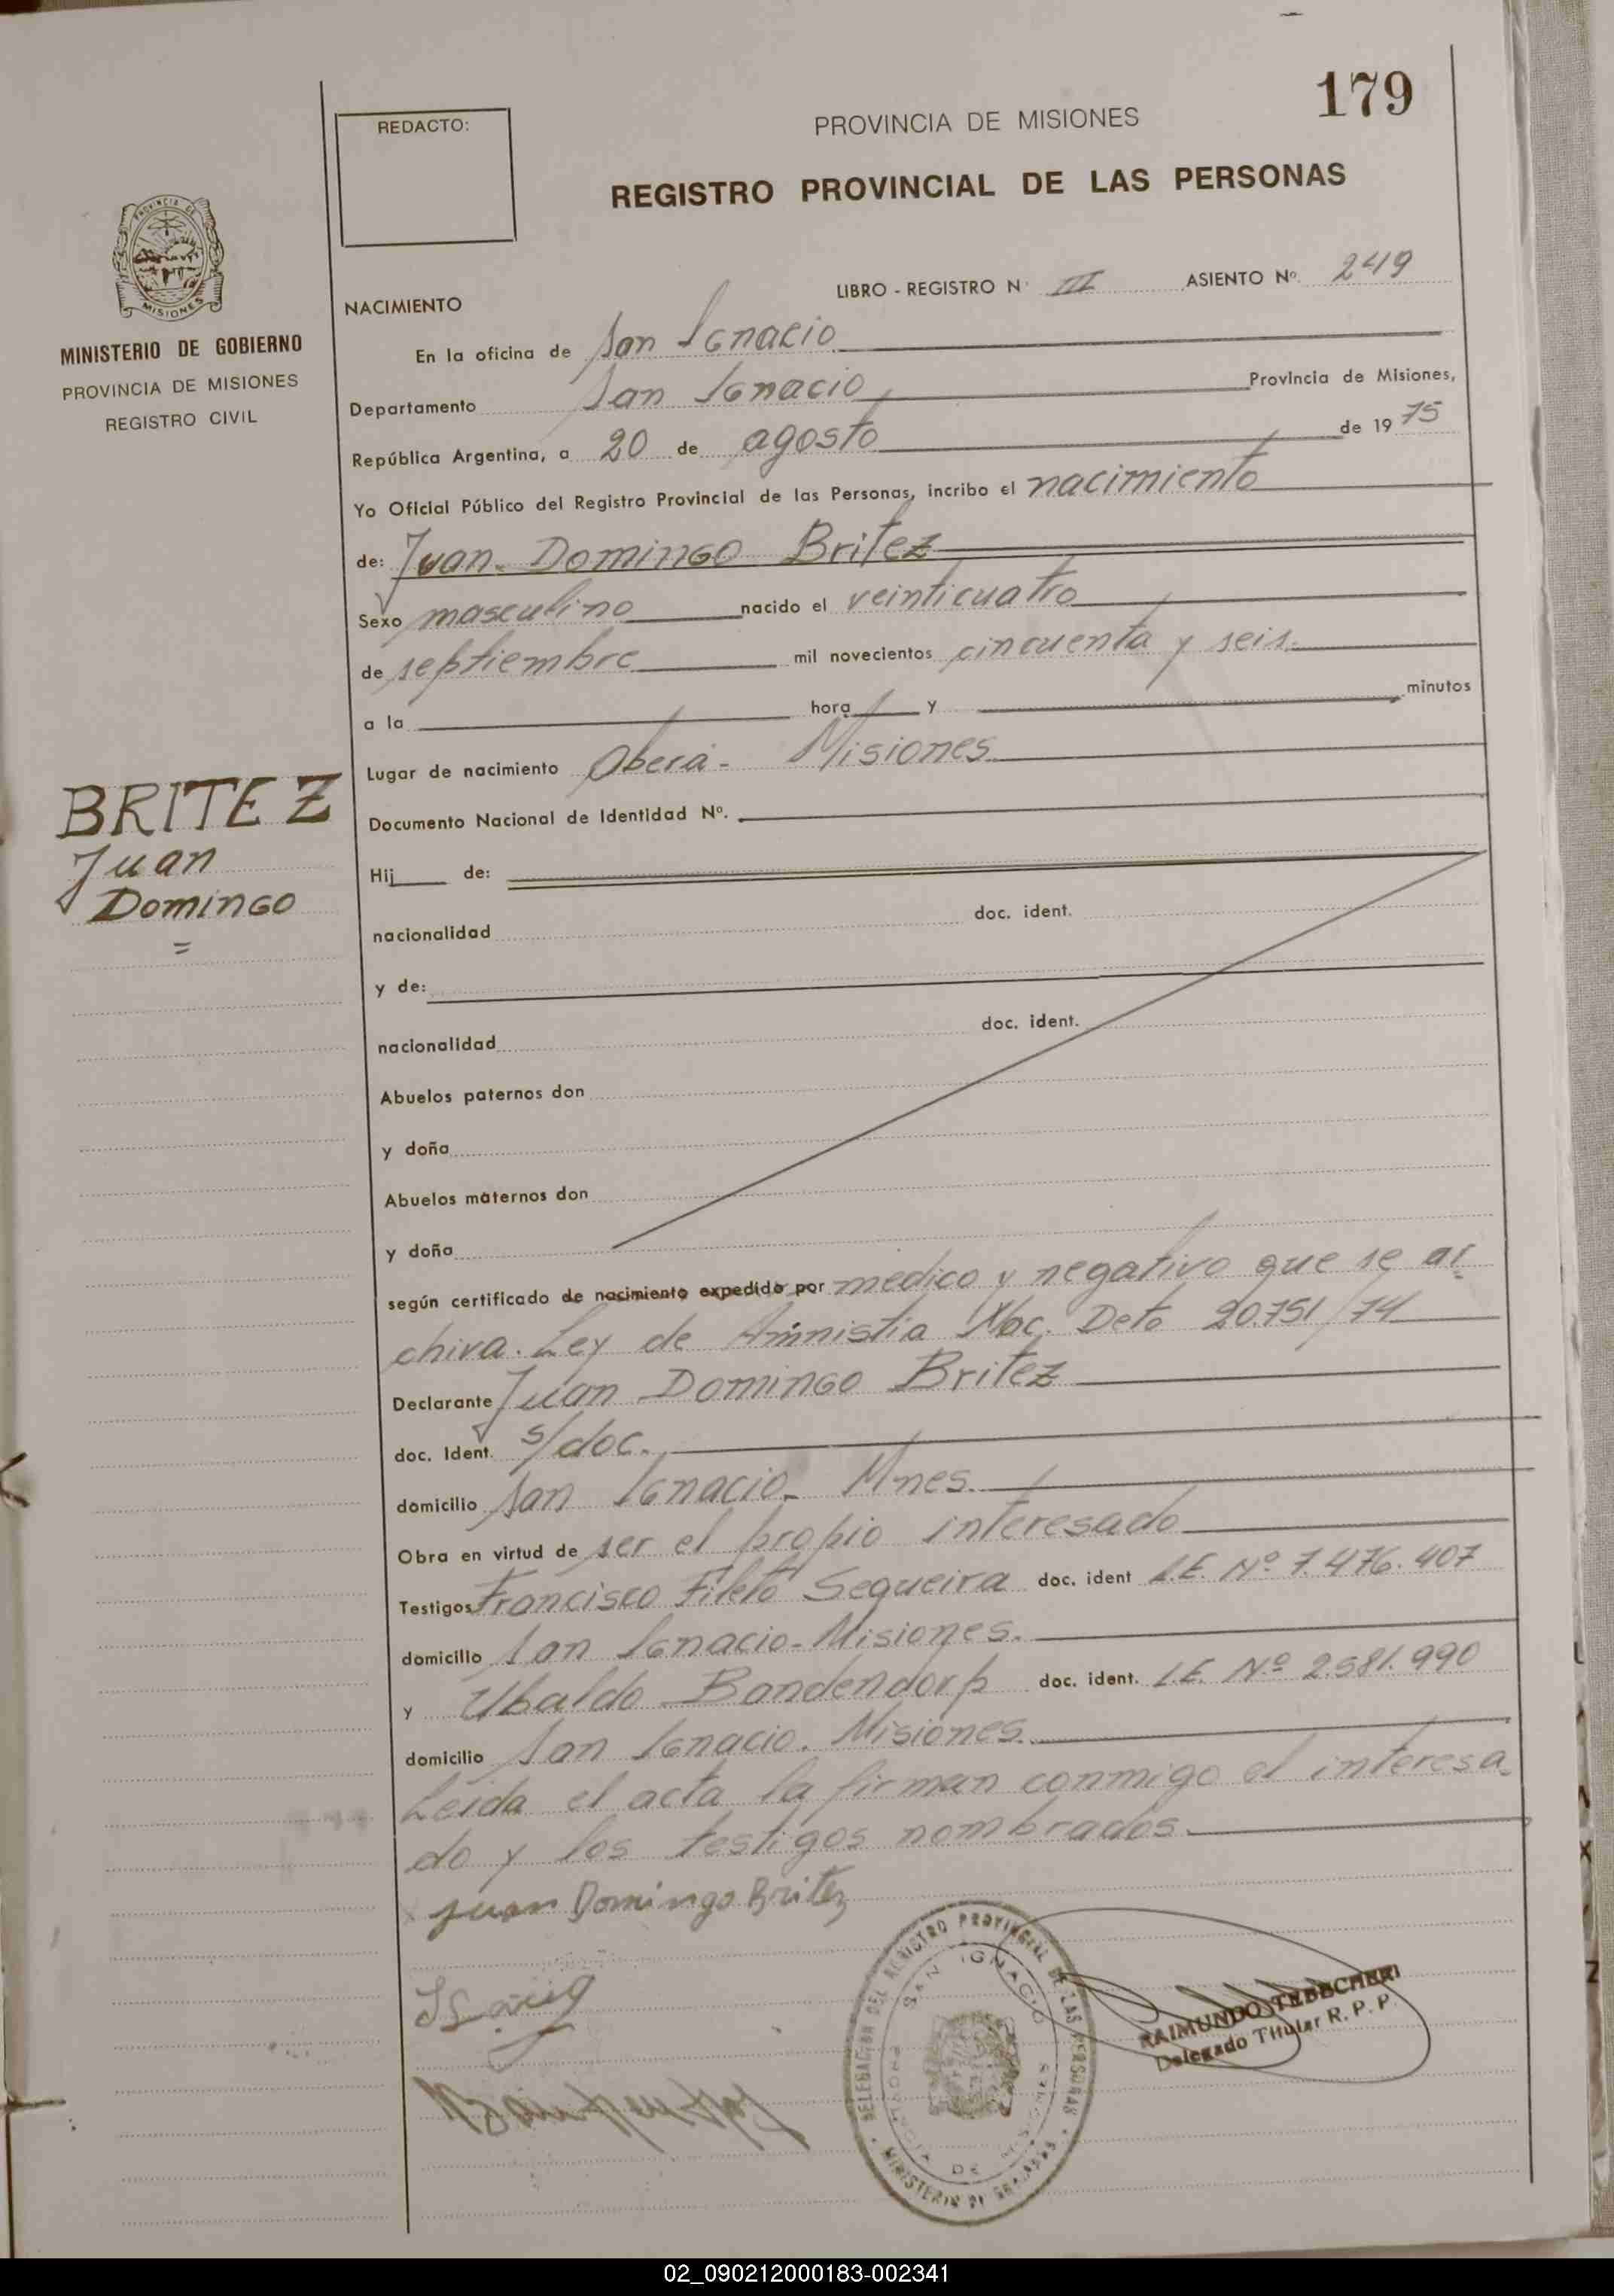 179
REDACTO:
PROVINCIA DE MISIONES
REGISTRO PROVINCIAL DE LAS PERSONAS
PROVINCIA DE
MISIONES
MINISTERIO DE GOBIERNO
PROVINCIA DE MISIONES
REGISTRO CIVIL
LIBRO - REGISTRO N III ASIENTO Nº. 249
NACIMIENTO
En la oficina de San Ignacio
Departamento San Ignacio Provincia de Misiones,
República Argentina, a 20 de agosto de 19 75
Yo Oficial Público del Registro Provincial de las Personas, incribo el nacimiento
de: Juan Domingo Britez
Sexo masculino nacido el veinticuatro
de septiembre mil novecientos cincuenta y seis.
a la hora y minutos
Lugar de nacimiento Oberá - Misiones
BRITEZ
Juan
Domingo
=
Documento Nacional de Identidad Nº.
Hij de:
nacionalidad doc. ident.
y de:
nacionalidad doc. ident.
Abuelos paternos don
y doña
Abuelos maternos don
y doña
según certificado de nacimiento expedido por medico y negativo que se ar
chiva. Ley de Amnistia Nac. Deto 20.751/74
Declarante Juan Domingo Britez
doc. Ident. s/doc.
domicilio San Ignacio. Mnes.
Obra en virtud de ser el propio interesado
Testigos Francisco Fileto Sequeira doc. ident L.E. Nº 7.476.407
domicilio San Ignacio - Misiones.
y Ubaldo Bandendorp doc. ident. L.E. Nº 2.581.990
domicilio San Ignacio. Misiones.
Leida el acta la firman conmigo el interesa
do y los testigos nombrados.
x Juan Domingo Britez
DELEGACION DEL REGISTRO PROVINCIAL DE LAS PERSONAS
SAN IGNACIO
PROVINCIA DE MISIONES
RAIMUNDO
Delegado Titular R. P. P.
02_090212000183-002341